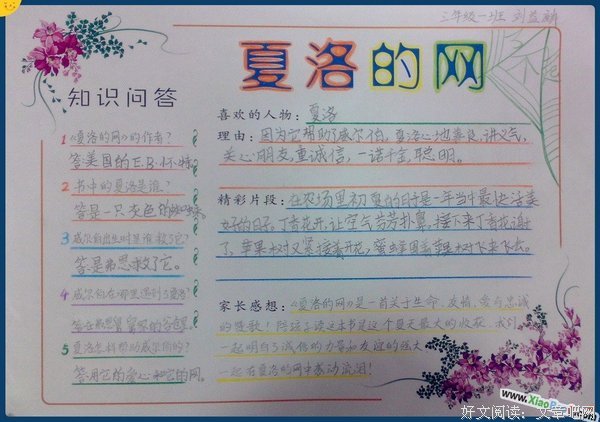 三年级一班 刘益
夏洛的网
知识问答
1 《夏洛的网》的作者?
答美国的E.B.怀特。
2 书中的夏洛是谁?
答是一只灰色的蜘蛛。
3 威尔伯出生时是谁救了它?
答是弗恩救了它。
4 威尔伯在哪里遇到了夏洛?
答在
家的谷仓里。
5 夏洛怎样帮助威尔伯的?
答用它的爱心和它的网。
喜欢的人物:夏洛
理由:因为它帮助了威尔伯,夏洛心地善良,讲义气,
关心朋友,重诚信,一诺千金,聪明。
精彩片段:在农场里初夏的日子是一年当中最快活美
好的日子。丁香花开,让空气芬芳扑鼻,接下来丁香花谢
了,苹果树又紧接着开花,蜜蜂围着苹果树飞来飞去。
家长感想:《夏洛的网》是一首关于生命、友情、爱与忠诚
的赞歌!陪孩子读这本书是这个夏天最大的收获,我们
一起明白了诚信的力量和友谊的伟大
一起在夏洛的网中感动流泪!
www.Xiao
好文阅读:文章吧网